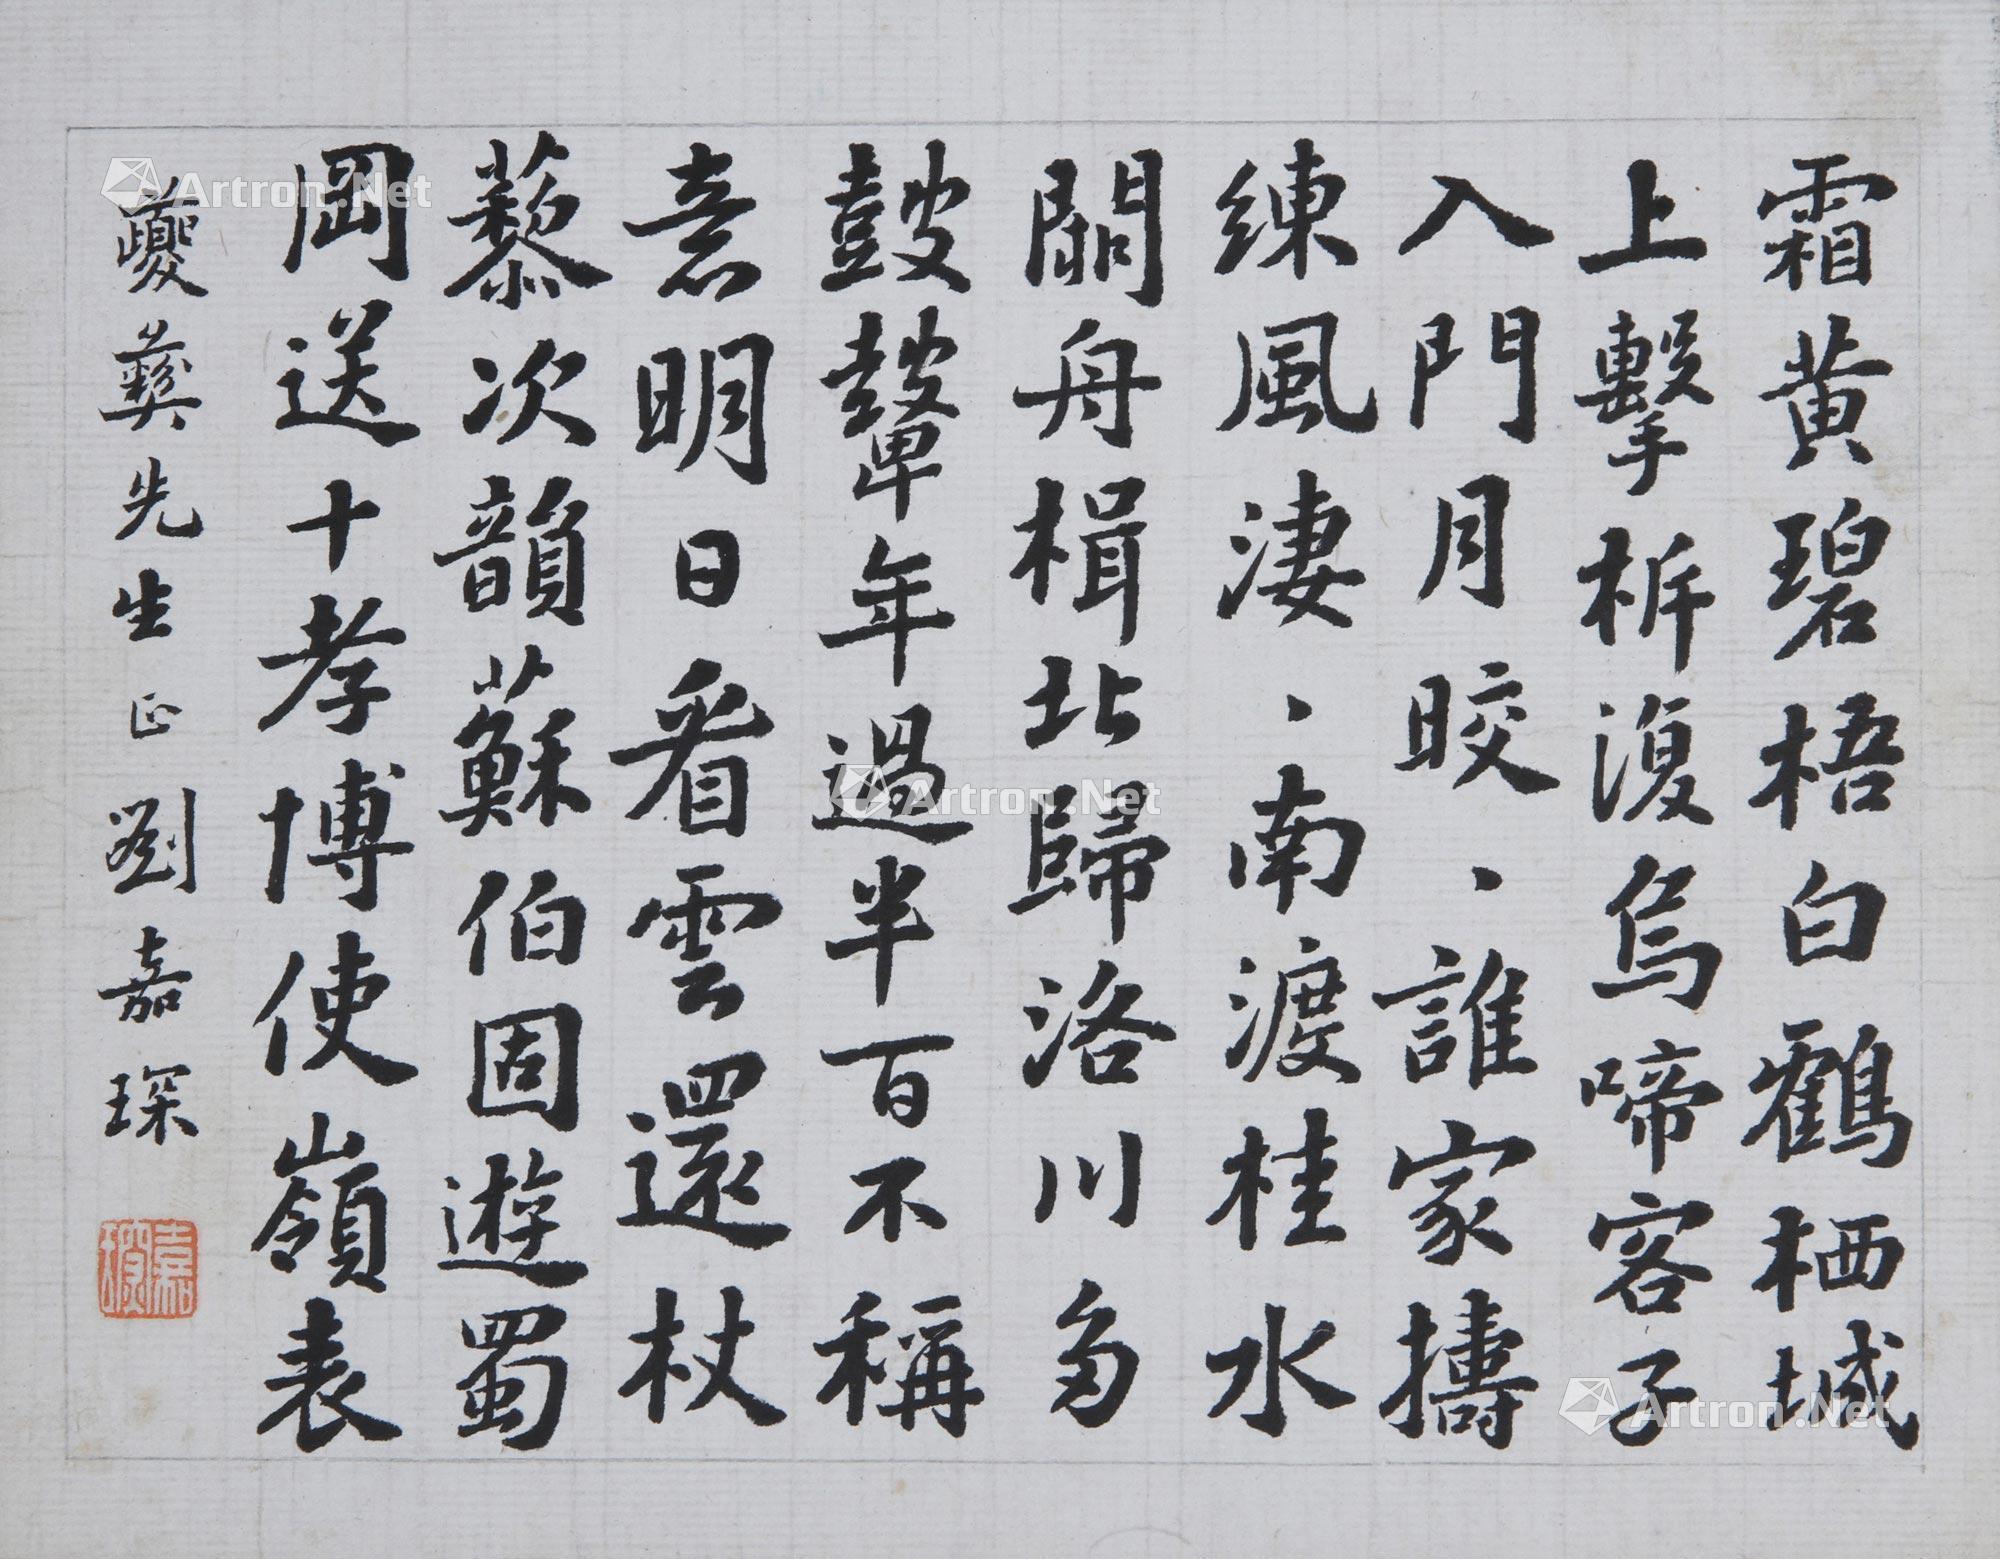 霜黄碧梧白鶴栖城
上擊柝復烏啼客子
入門月皎、誰家擣
練風淒、南渡桂水
闕舟楫北歸洛川多
鼓鼙年過半百不稱
意明日看雲還杖
藜次韻蘇伯固遊蜀
岡送十孝博使嶺表
夔彝先生正 劉嘉琛
嘉琛
Artron.Net
Artron.Net
Artron.Net